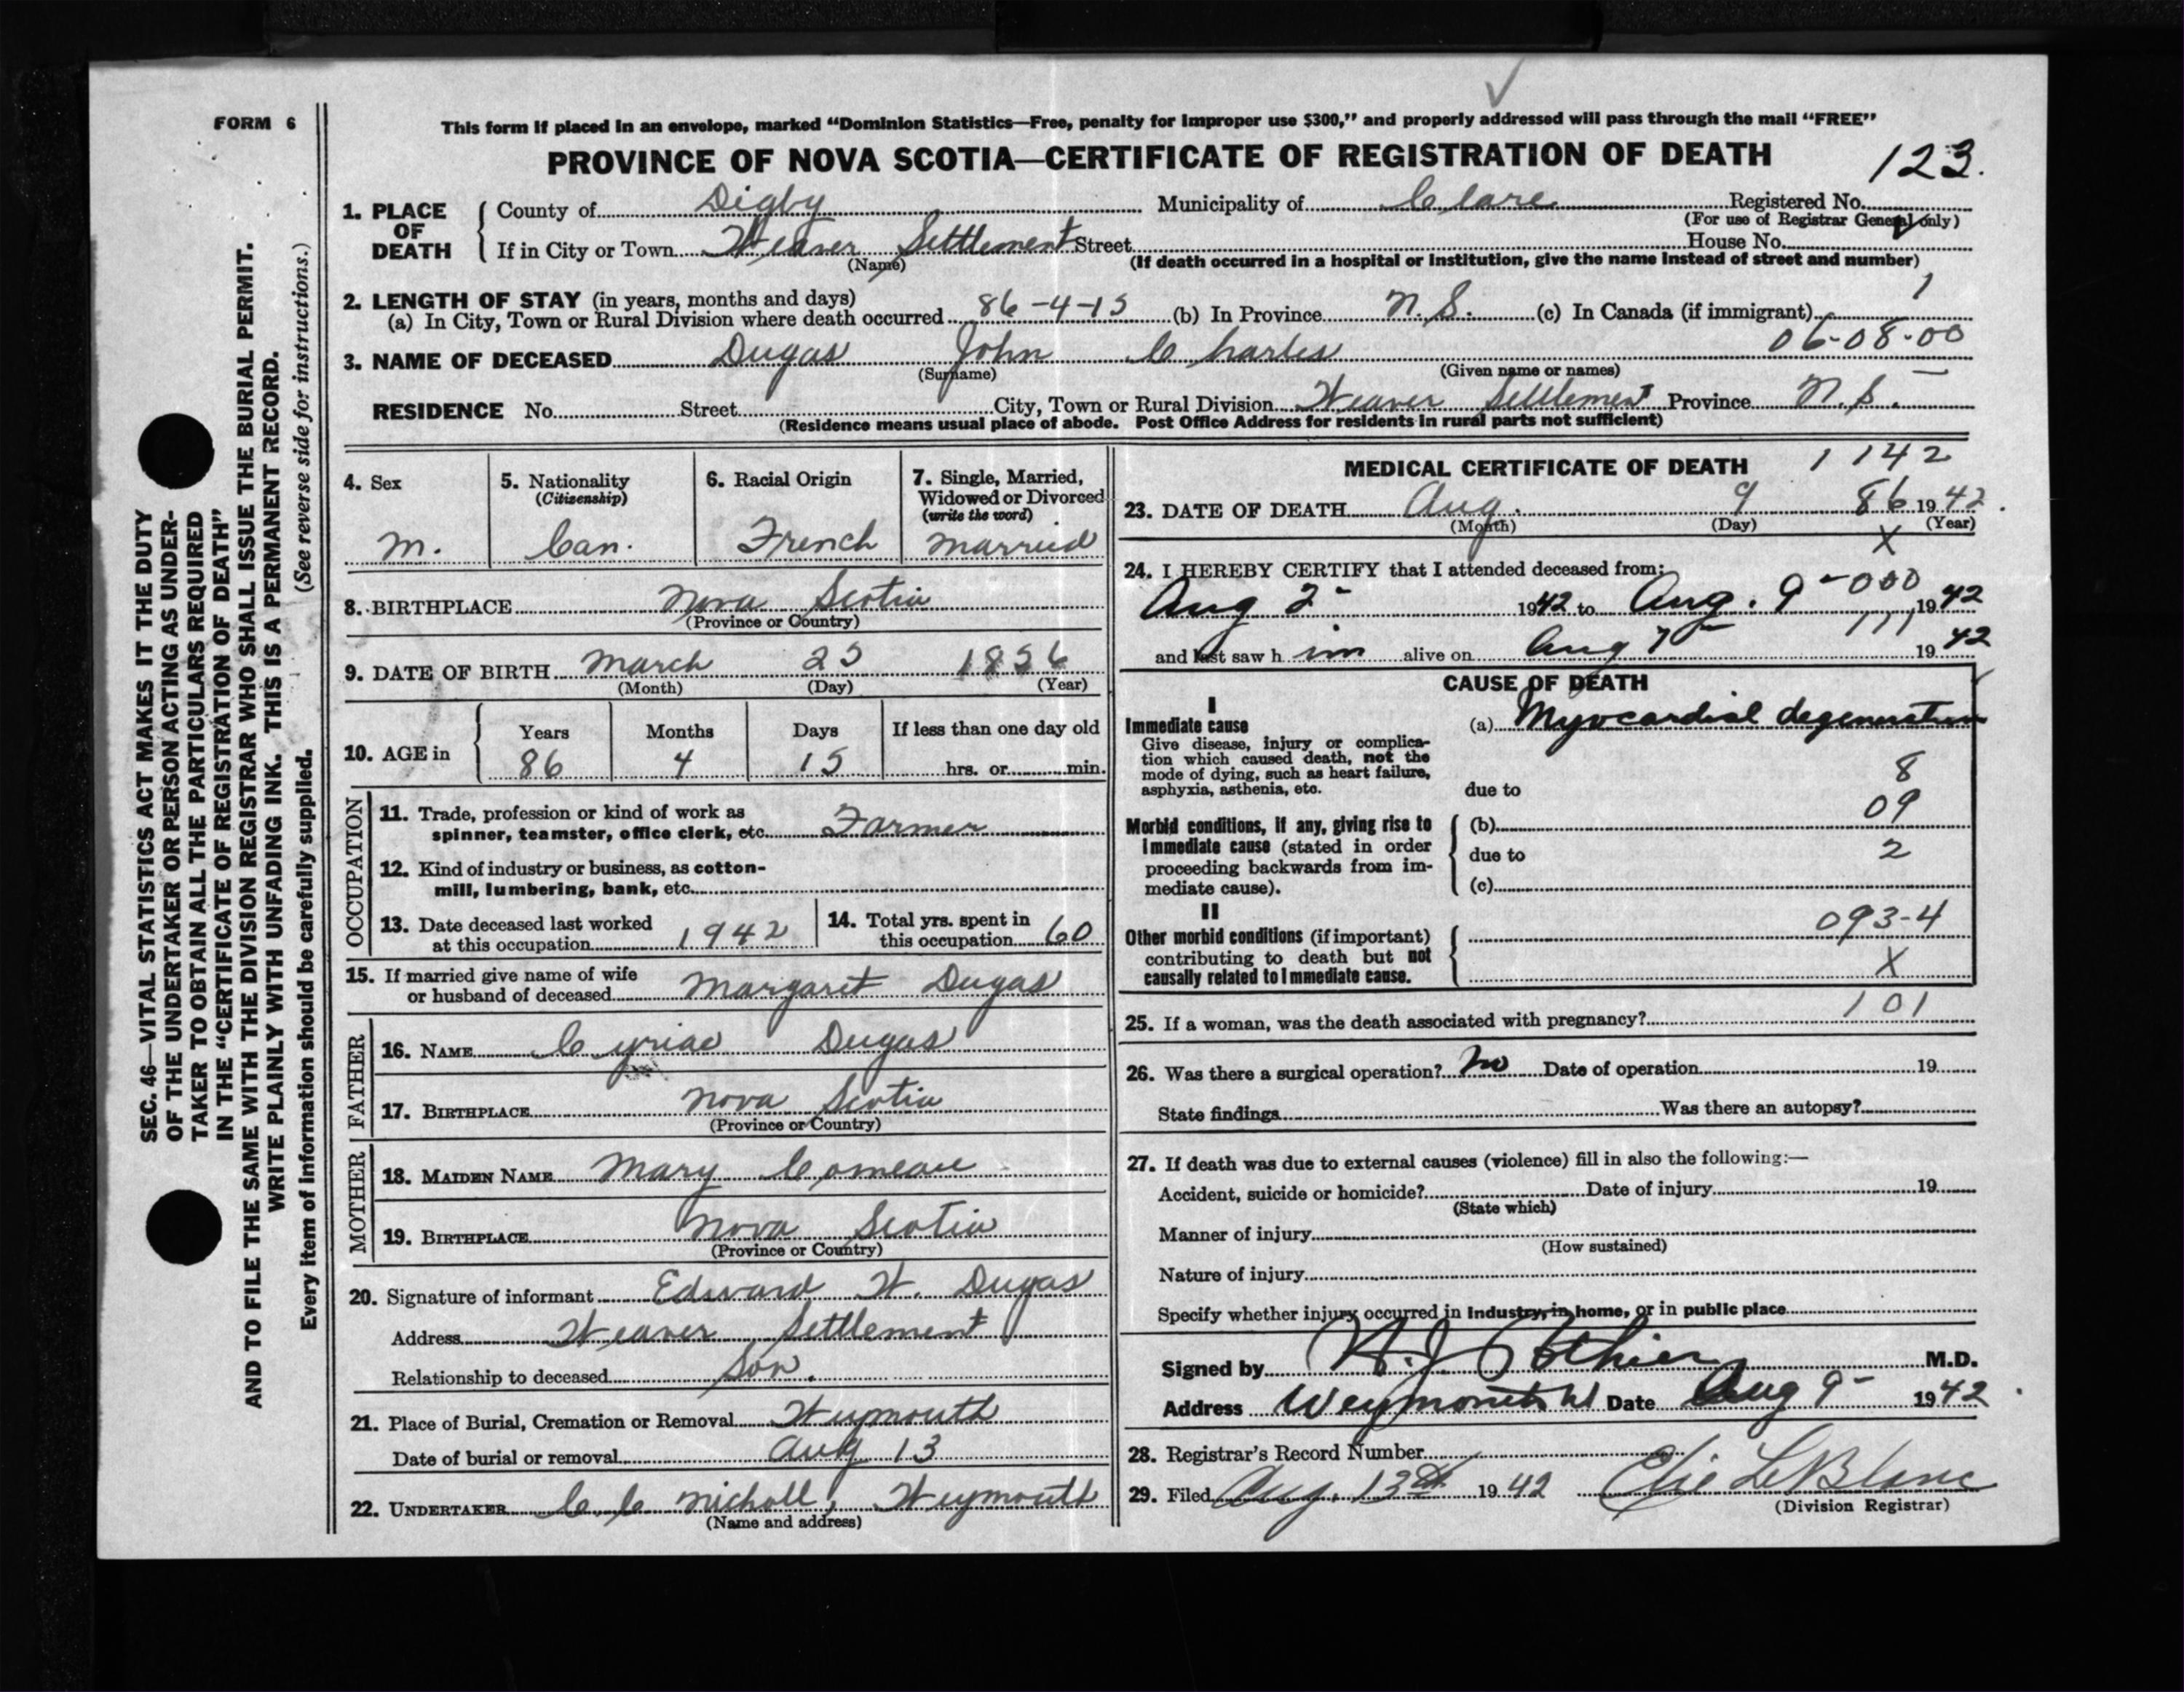 FORM 6
This form if placed in an envelope, marked “Dominion Statistics—Free, penalty for improper use $300,” and properly addressed will pass through the mail “FREE”
PROVINCE OF NOVA SCOTIA—CERTIFICATE OF REGISTRATION OF DEATH
123.
1. PLACE OF DEATH
County of Digby Municipality of Clare Registered No.
(For use of Registrar General only)
If in City or Town Weaver Settlement Street House No.
(Name) (If death occurred in a hospital or institution, give the name instead of street and number)
2. LENGTH OF STAY (in years, months and days) 1
(a) In City, Town or Rural Division where death occurred 86-4-15 (b) In Province N.S. (c) In Canada (if immigrant)
06-08-00
3. NAME OF DECEASED Dugas John Charles
(Surname) (Given name or names)
RESIDENCE No. Street City, Town or Rural Division Weaver Settlement Province N.S.
(Residence means usual place of abode. Post Office Address for residents in rural parts not sufficient)
4. Sex
m.
5. Nationality
(Citizenship)
Can.
6. Racial Origin
French
7. Single, Married,
Widowed or Divorced
(write the word)
married
8. BIRTHPLACE Nova Scotia
(Province or Country)
9. DATE OF BIRTH March 25 1856
(Month) (Day) (Year)
10. AGE in
Years Months Days If less than one day old
86 4 15 hrs. or min.
OCCUPATION
11. Trade, profession or kind of work as
spinner, teamster, office clerk, etc. Farmer
12. Kind of industry or business, as cotton-
mill, lumbering, bank, etc.
13. Date deceased last worked
at this occupation 1942
14. Total yrs. spent in
this occupation 60
15. If married give name of wife
or husband of deceased Margaret Dugas
FATHER
16. NAME Cyriac Dugas
17. BIRTHPLACE Nova Scotia
(Province or Country)
MOTHER
18. MAIDEN NAME Mary Comeau
19. BIRTHPLACE Nova Scotia
(Province or Country)
20. Signature of informant Edward W. Dugas
Address Weaver Settlement
Relationship to deceased Son.
21. Place of Burial, Cremation or Removal Weymouth
Date of burial or removal Aug 13
22. UNDERTAKER C. C. Nicholl, Weymouth
(Name and address)
MEDICAL CERTIFICATE OF DEATH 1 142
23. DATE OF DEATH Aug. 9 86 1942.
(Month) (Day) (Year)
X
24. I HEREBY CERTIFY that I attended deceased from:
000
Aug 2- 1942 to Aug. 9- 1942
111
and last saw him alive on Aug 7- 1942
CAUSE OF DEATH
I
Immediate cause (a) Myocardial degeneration
Give disease, injury or complica-
tion which caused death, not the
mode of dying, such as heart failure,
asphyxia, asthenia, etc.
due to
8
Morbid conditions, if any, giving rise to
immediate cause (stated in order
proceeding backwards from im-
mediate cause).
(b) 09
due to 2
(c)
II
Other morbid conditions (if important)
contributing to death but not
causally related to immediate cause.
093-4
X
101
25. If a woman, was the death associated with pregnancy?
26. Was there a surgical operation? no Date of operation 19
State findings Was there an autopsy?
27. If death was due to external causes (violence) fill in also the following:—
Accident, suicide or homicide? Date of injury 19
(State which)
Manner of injury
(How sustained)
Nature of injury
Specify whether injury occurred in industry, in home, or in public place
Signed by Pothier M.D.
Address Weymouth Date Aug 9- 1942.
28. Registrar's Record Number
29. Filed Aug. 13th 1942 Elie LeBlanc
(Division Registrar)
SEC. 46—VITAL STATISTICS ACT MAKES IT THE DUTY
OF THE UNDERTAKER OR PERSON ACTING AS UNDER-
TAKER TO OBTAIN ALL THE PARTICULARS REQUIRED
IN THE “CERTIFICATE OF REGISTRATION OF DEATH”
AND TO FILE THE SAME WITH THE DIVISION REGISTRAR WHO SHALL ISSUE THE BURIAL PERMIT.
WRITE PLAINLY WITH UNFADING INK. THIS IS A PERMANENT RECORD.
Every item of information should be carefully supplied. (See reverse side for instructions.)